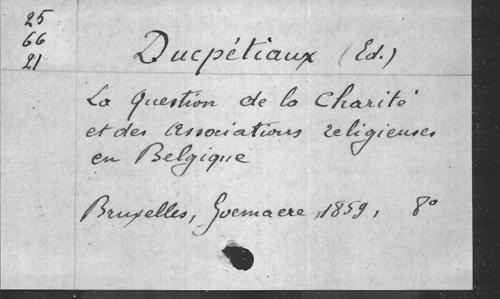 25
66
21
Ducpétiaux (Ed.)
La Question de la Charité
et des Associations religieuses
en Belgique
Bruxelles, Goemaere, 1859, 8°